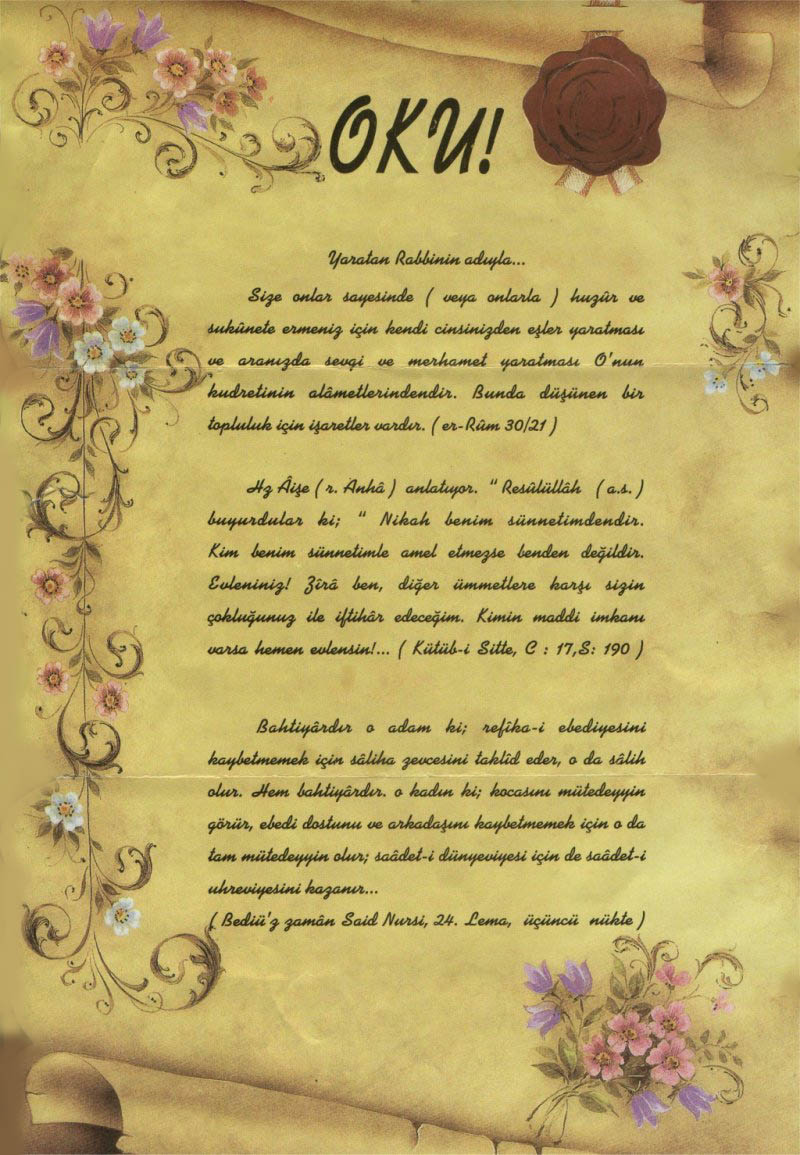 OKU!
Yaratan Rabbinin adıyla...
Size onlar sayesinde ( veya onlarla ) huzûr ve
sukûnete ermeniz için kendi cinsinizden eşler yaratması
ve aranızda sevgi ve merhamet yaratması O'nun
kudretinin alâmetlerindendir. Bunda düşünen bir
topluluk için işaretler vardır. ( er-Rûm 30/21 )
Hz Âişe ( r. Anhâ ) anlatıyor. " Resûlüllâh ( a.s. )
buyurdular ki; " Nikah benim sünnetimdendir.
Kim benim sünnetimle amel etmezse benden değildir.
Evleniniz! Zîrâ ben, diğer ümmetlere karşı sizin
çokluğunuz ile iftihâr edeceğim. Kimin maddi imkanı
varsa hemen evlensin!... ( Kütüb-i Sitte, C : 17,S: 190 )
Bahtiyârdır o adam ki; refîka-i ebediyesini
kaybetmemek için sâliha zevcesini taklîd eder, o da sâlih
olur. Hem bahtiyârdır. o kadın ki; kocasını mütedeyyin
görür, ebedi dostunu ve arkadaşını kaybetmemek için o da
tam mütedeyyin olur; saâdet-i dünyeviyesi için de saâdet-i
uhreviyesini kazanır...
( Bediü'z zamân Said Nursi, 24. Lema, üçüncü nükte )